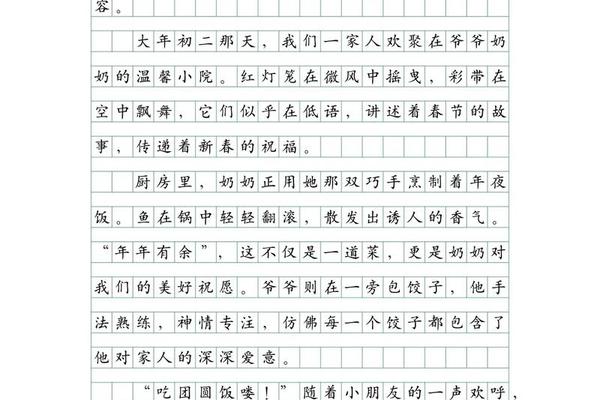 容。
大年初二那天，我们一家人欢聚在爷爷奶
奶的温馨小院。红灯笼在微风中摇曳，彩带在
空中飘舞，它们似乎在低语，讲述着春节的故
事，传递着新春的祝福。
厨房里，奶奶正用她那双巧手烹制着年夜
饭。鱼在锅中轻轻翻滚，散发出诱人的香气。
“年年有余”，这不仅是一道菜，更是奶奶对
我们的美好祝愿。爷爷则在一旁包饺子，他手
法熟练，神情专注，仿佛每一个饺子都包含了
他对家人的深深爱意。
“吃团圆饭喽！”随着小朋友的一声欢呼，